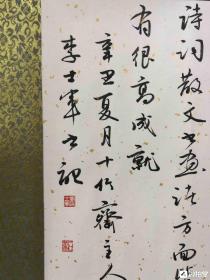 诗词散文书画诸方面皆
有很高成就
辛丑夏月十竹斋主人
李士军书记